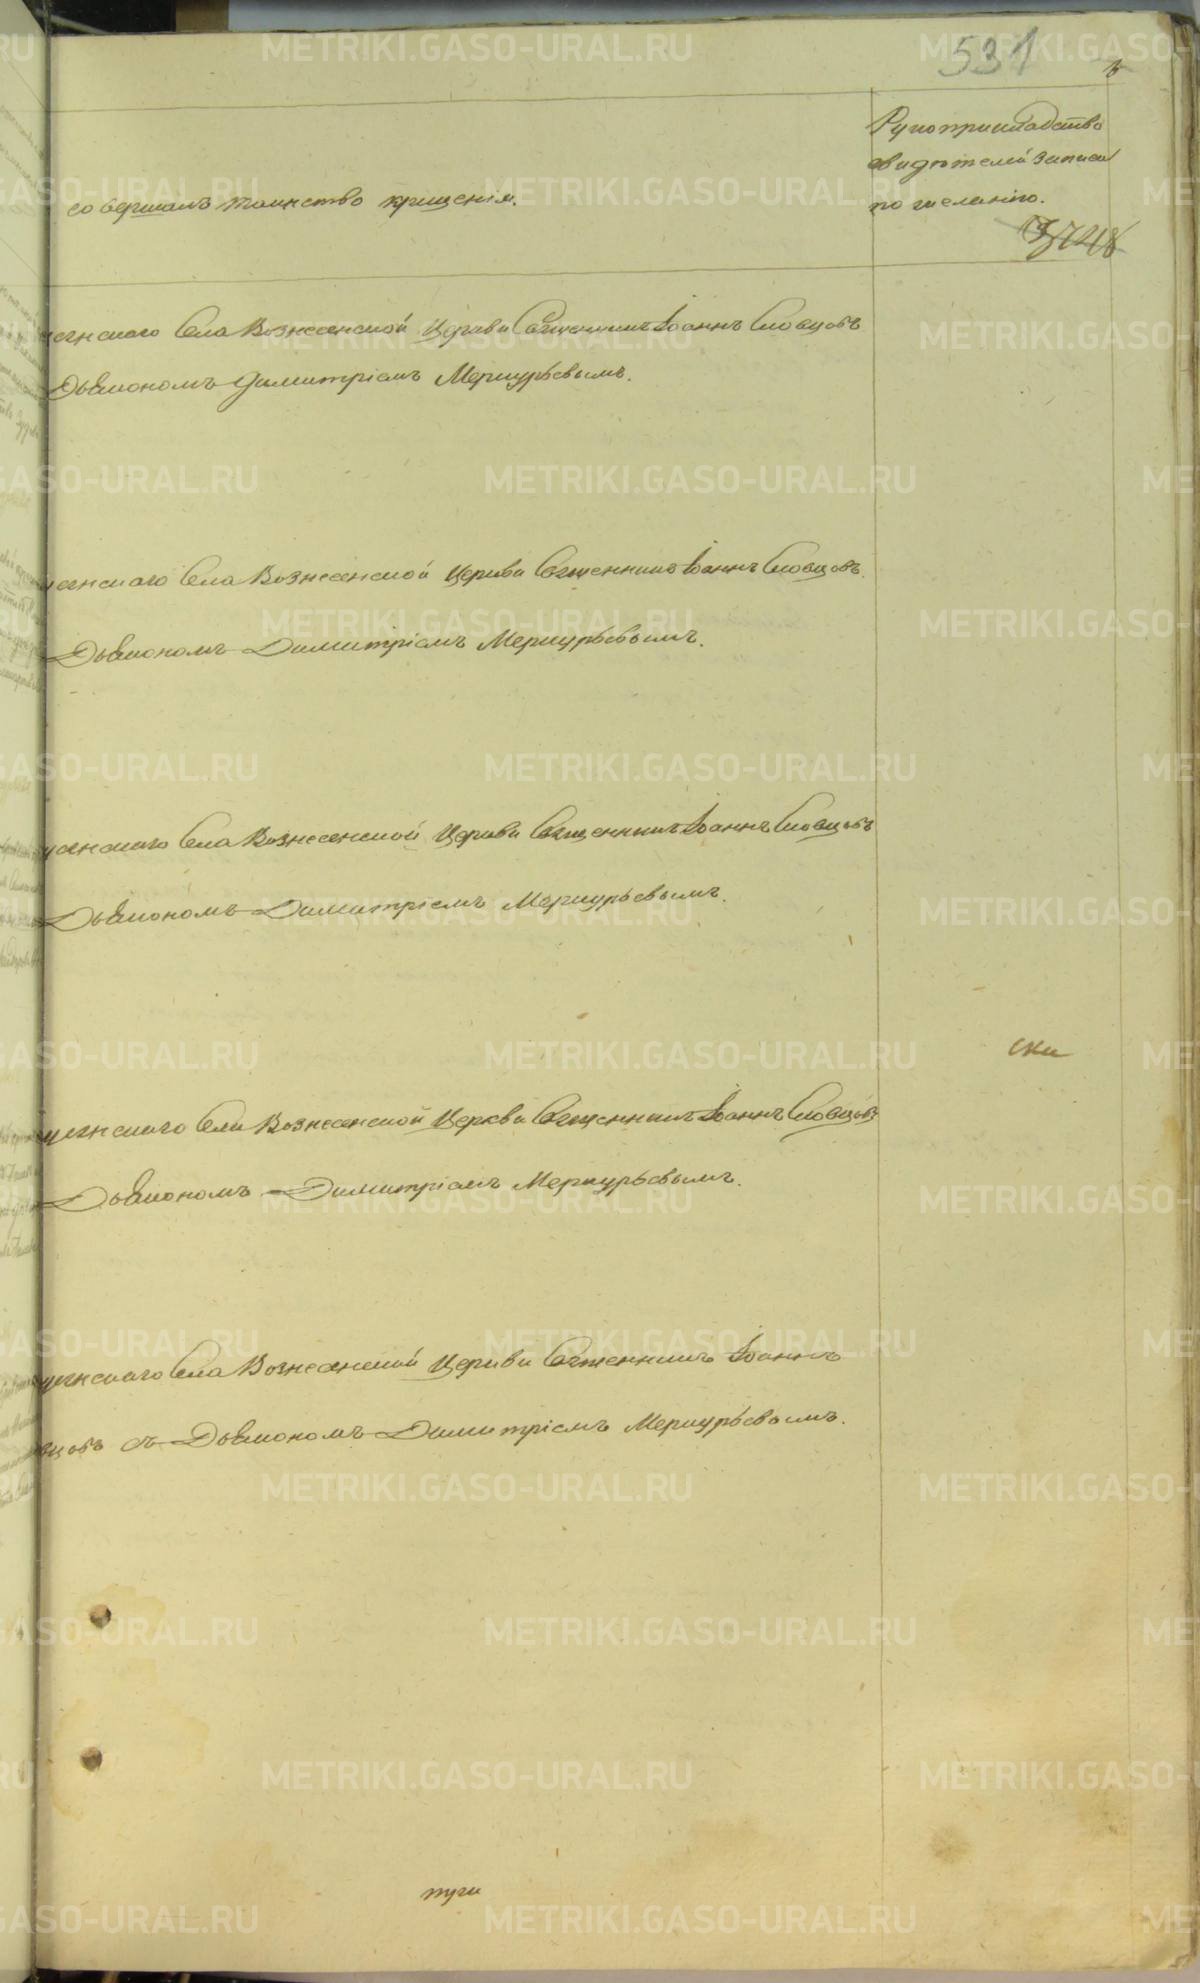 531
совершалъ таинство крещенія.
Рукоприкладство
свидѣтелей записи
по желанію.
Села Вознесенской Церкви Священникъ Іоаннъ Словцовъ
Дьякономъ Димитріемъ Меркурьевымъ.
Села Вознесенской Церкви Священникъ Іоаннъ Словцовъ.
Дьякономъ Димитріемъ Меркурьевымъ.
Села Вознесенской Церкви Священникъ Іоаннъ Словцовъ
Дьякономъ Димитріемъ Меркурьевымъ.
ски
Села Вознесенской Церкви Священникъ Іоаннъ Словцовъ
Дьякономъ Димитріемъ Меркурьевымъ.
Села Вознесенской Церкви Священникъ Іоаннъ
вцовъ съ Дьякономъ Димитріемъ Меркурьевымъ.
METRIKI.GASO-URAL.RU